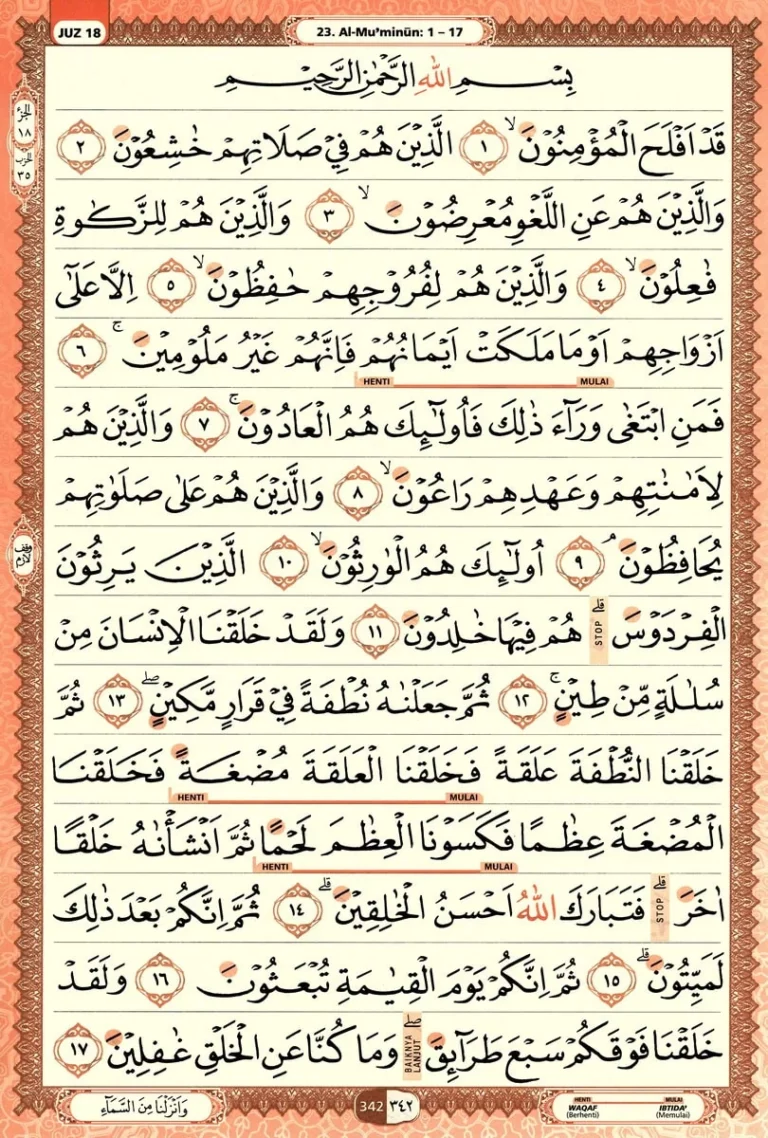 JUZ 18
23. Al-Mu'minūn: 1 – 17
الجزء ١٨
الحزب ٣٥
بِسْمِ اللّٰهِ الرَّحْمٰنِ الرَّحِيْمِ
قَدْ اَفْلَحَ الْمُؤْمِنُوْنَۙ ١ الَّذِيْنَ هُمْ فِيْ صَلَاتِهِمْ خٰشِعُوْنَ ٢
وَالَّذِيْنَ هُمْ عَنِ اللَّغْوِ مُعْرِضُوْنَۙ ٣ وَالَّذِيْنَ هُمْ لِلزَّكٰوةِ
فٰعِلُوْنَۙ ٤ وَالَّذِيْنَ هُمْ لِفُرُوْجِهِمْ حٰفِظُوْنَۙ ٥ اِلَّا عَلٰٓى
اَزْوَاجِهِمْ اَوْ مَا مَلَكَتْ اَيْمَانُهُمْ فَاِنَّهُمْ غَيْرُ مَلُوْمِيْنَۚ ٦
HENTI MULAI
فَمَنِ ابْتَغٰى وَرَاۤءَ ذٰلِكَ فَاُولٰۤىِٕكَ هُمُ الْعَادُوْنَۚ ٧ وَالَّذِيْنَ هُمْ
لِاَمٰنٰتِهِمْ وَعَهْدِهِمْ رَاعُوْنَۙ ٨ وَالَّذِيْنَ هُمْ عَلٰى صَلَوٰتِهِمْ
وقف لازم
يُحَافِظُوْنَۘ ٩ اُولٰۤىِٕكَ هُمُ الْوٰرِثُوْنَۙ ١٠ الَّذِيْنَ يَرِثُوْنَ
الْفِرْدَوْسَۗ STOP هُمْ فِيْهَا خٰلِدُوْنَ ١١ وَلَقَدْ خَلَقْنَا الْاِنْسَانَ مِنْ
سُلٰلَةٍ مِّنْ طِيْنٍۚ ١٢ ثُمَّ جَعَلْنٰهُ نُطْفَةً فِيْ قَرَارٍ مَّكِيْنٍۖ ١٣ ثُمَّ
خَلَقْنَا النُّطْفَةَ عَلَقَةً فَخَلَقْنَا الْعَلَقَةَ مُضْغَةً فَخَلَقْنَا
HENTI MULAI
الْمُضْغَةَ عِظٰمًا فَكَسَوْنَا الْعِظٰمَ لَحْمًا ثُمَّ اَنْشَأْنٰهُ خَلْقًا
HENTI MULAI
اٰخَرَۗ STOP فَتَبَارَكَ اللّٰهُ اَحْسَنُ الْخٰلِقِيْنَۗ ١٤ ثُمَّ اِنَّكُمْ بَعْدَ ذٰلِكَ
لَمَيِّتُوْنَۗ ١٥ ثُمَّ اِنَّكُمْ يَوْمَ الْقِيٰمَةِ تُبْعَثُوْنَ ١٦ وَلَقَدْ
خَلَقْنَا فَوْقَكُمْ سَبْعَ طَرَاۤىِٕقَۖ BAIKNYA LANJUT وَمَا كُنَّا عَنِ الْخَلْقِ غٰفِلِيْنَ ١٧
وَاَنْزَلْنَا مِنَ السَّمَاۤءِ
342 ٣٤٢
HENTI MULAI
WAQAF IBTIDA'
(Berhenti) (Memulai)